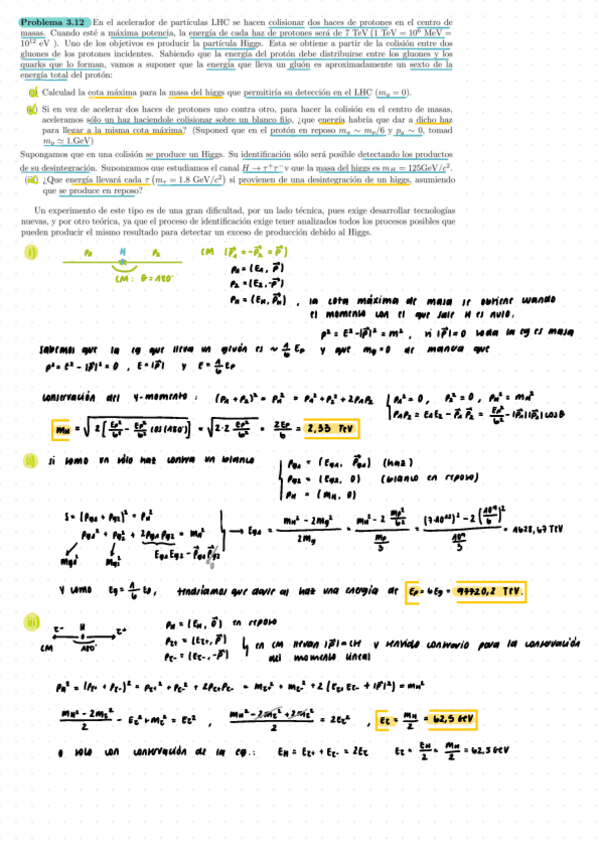 Problema 3.12 En el acelerador de partículas LHC se hacen colisionar dos haces de protones en el centro de
masas. Cuando esté a máxima potencia, la energía de cada haz de protones será de 7 TeV (1 TeV = 10⁶ MeV =
10¹² eV ). Uno de los objetivos es producir la partícula Higgs. Esta se obtiene a partir de la colisión entre dos
gluones de los protones incidentes. Sabiendo que la energía del protón debe distribuirse entre los gluones y los
quarks que lo forman, vamos a suponer que la energía que lleva un gluón es aproximadamente un sexto de la
energía total del protón:
i) Calculad la cota máxima para la masa del higgs que permitiría su detección en el LHC (m_g = 0).
ii) Si en vez de acelerar dos haces de protones uno contra otro, para hacer la colisión en el centro de masas,
aceleramos sólo un haz haciendole colisionar sobre un blanco fijo, ¿que energía habría que dar a dicho haz
para llegar a la misma cota máxima? (Suponed que en el protón en reposo m_g ~ m_p/6 y p_g ~ 0, tomad
m_p ≃ 1.GeV)
Supongamos que en una colisión se produce un Higgs. Su identificación sólo será posible detectando los productos
de su desintegración. Supongamos que estudiamos el canal H → τ⁺τ⁻ y que la masa del higgs es m_H = 125GeV/c².
(iii) ¿Que energía llevará cada τ (m_τ = 1.8 GeV/c²) si provienen de una desintegración de un higgs, asumiendo
que se produce en reposo?
Un experimento de este tipo es de una gran dificultad, por un lado técnica, pues exige desarrollar tecnologías
nuevas, y por otro teórica, ya que el proceso de identificación exige tener analizados todos los procesos posibles que
pueden producir el mismo resultado para detectar un exceso de producción debido al Higgs.
i) P₁ H P₂ CM (P⃗₁ = -P⃗₂ = P⃗)
CM: θ = 180°
P₁ = (E₁, P⃗)
P₂ = (E₂, -P⃗)
P_H = (E_H, P⃗_H) , la cota máxima de masa se obtiene cuando
el momento con el que sale H es nulo.
P² = E² - |P⃗|² = m² , si |P⃗| = 0 toda la eg es masa
Sabemos que la eg que lleva un gluón es ~ 1/6 Ep y que mg = 0 de manera que
P² = E² - |P⃗|² = 0 , E = |P⃗| y E = 1/6 Ep
conservación del 4-momento: (P₁ + P₂)² = P_H² = P₁² + P₂² + 2P₁P₂
P₁² = 0, P₂² = 0, P_H² = m_H²
P₁P₂ = E₁E₂ - P⃗₁P⃗₂ = Ep²/6² - |P⃗₁||P⃗₂|cosθ
m_H = √(2[Ep²/6² - Ep²/6² cos(180°)]) = √(2·2 Ep²/6²) = 2Ep/6 = 2,33 TeV
ii) si como un sólo haz contra un blanco
P_g1 = (E_g1, P⃗_g1) (haz)
P_g2 = (E_g2, 0) (blanco en reposo)
P_H = (m_H, 0)
S = (P_g1 + P_g2)² = P_H²
P_g1² + P_g2² + 2P_g1P_g2 = m_H²
m_g1² m_g2² E_g1E_g2 - P⃗_g1P⃗_g2
→ E_g1 = (m_H² - 2m_g²)/2m_g
Y como Eg = 1/6 Ep, tendríamos que darle al haz una energía de Ep = 6Eg = 97720,2 TeV.
iii) τ⁻ H τ⁺
CM 180°
P_H = (E_H, 0⃗) en reposo
P_τ+ = (E_τ+, P⃗)
P_τ- = (E_τ-, -P⃗)
en CM llevan |P⃗| = CM y sentido contrario para la conservación
del momento lineal
P_H² = (P_τ+ + P_τ-)² = P_τ+² + P_τ-² + 2P_τ+P_τ- = m_τ+² + m_τ-² + 2(E_τ+E_τ- + |P⃗|²) = m_H²
(m_H² - 2m_τ²)/2 - E_τ² + m_τ² = E_τ² , (m_H² - 2m_τ² + 2m_τ²)/2 = 2E_τ² , E_τ = m_H/2 = 62,5 GeV
o solo con conservación de la eg.: E_H = E_τ+ + E_τ- = 2E_τ E_τ = E_H/2 = m_H/2 = 62,5 GeV